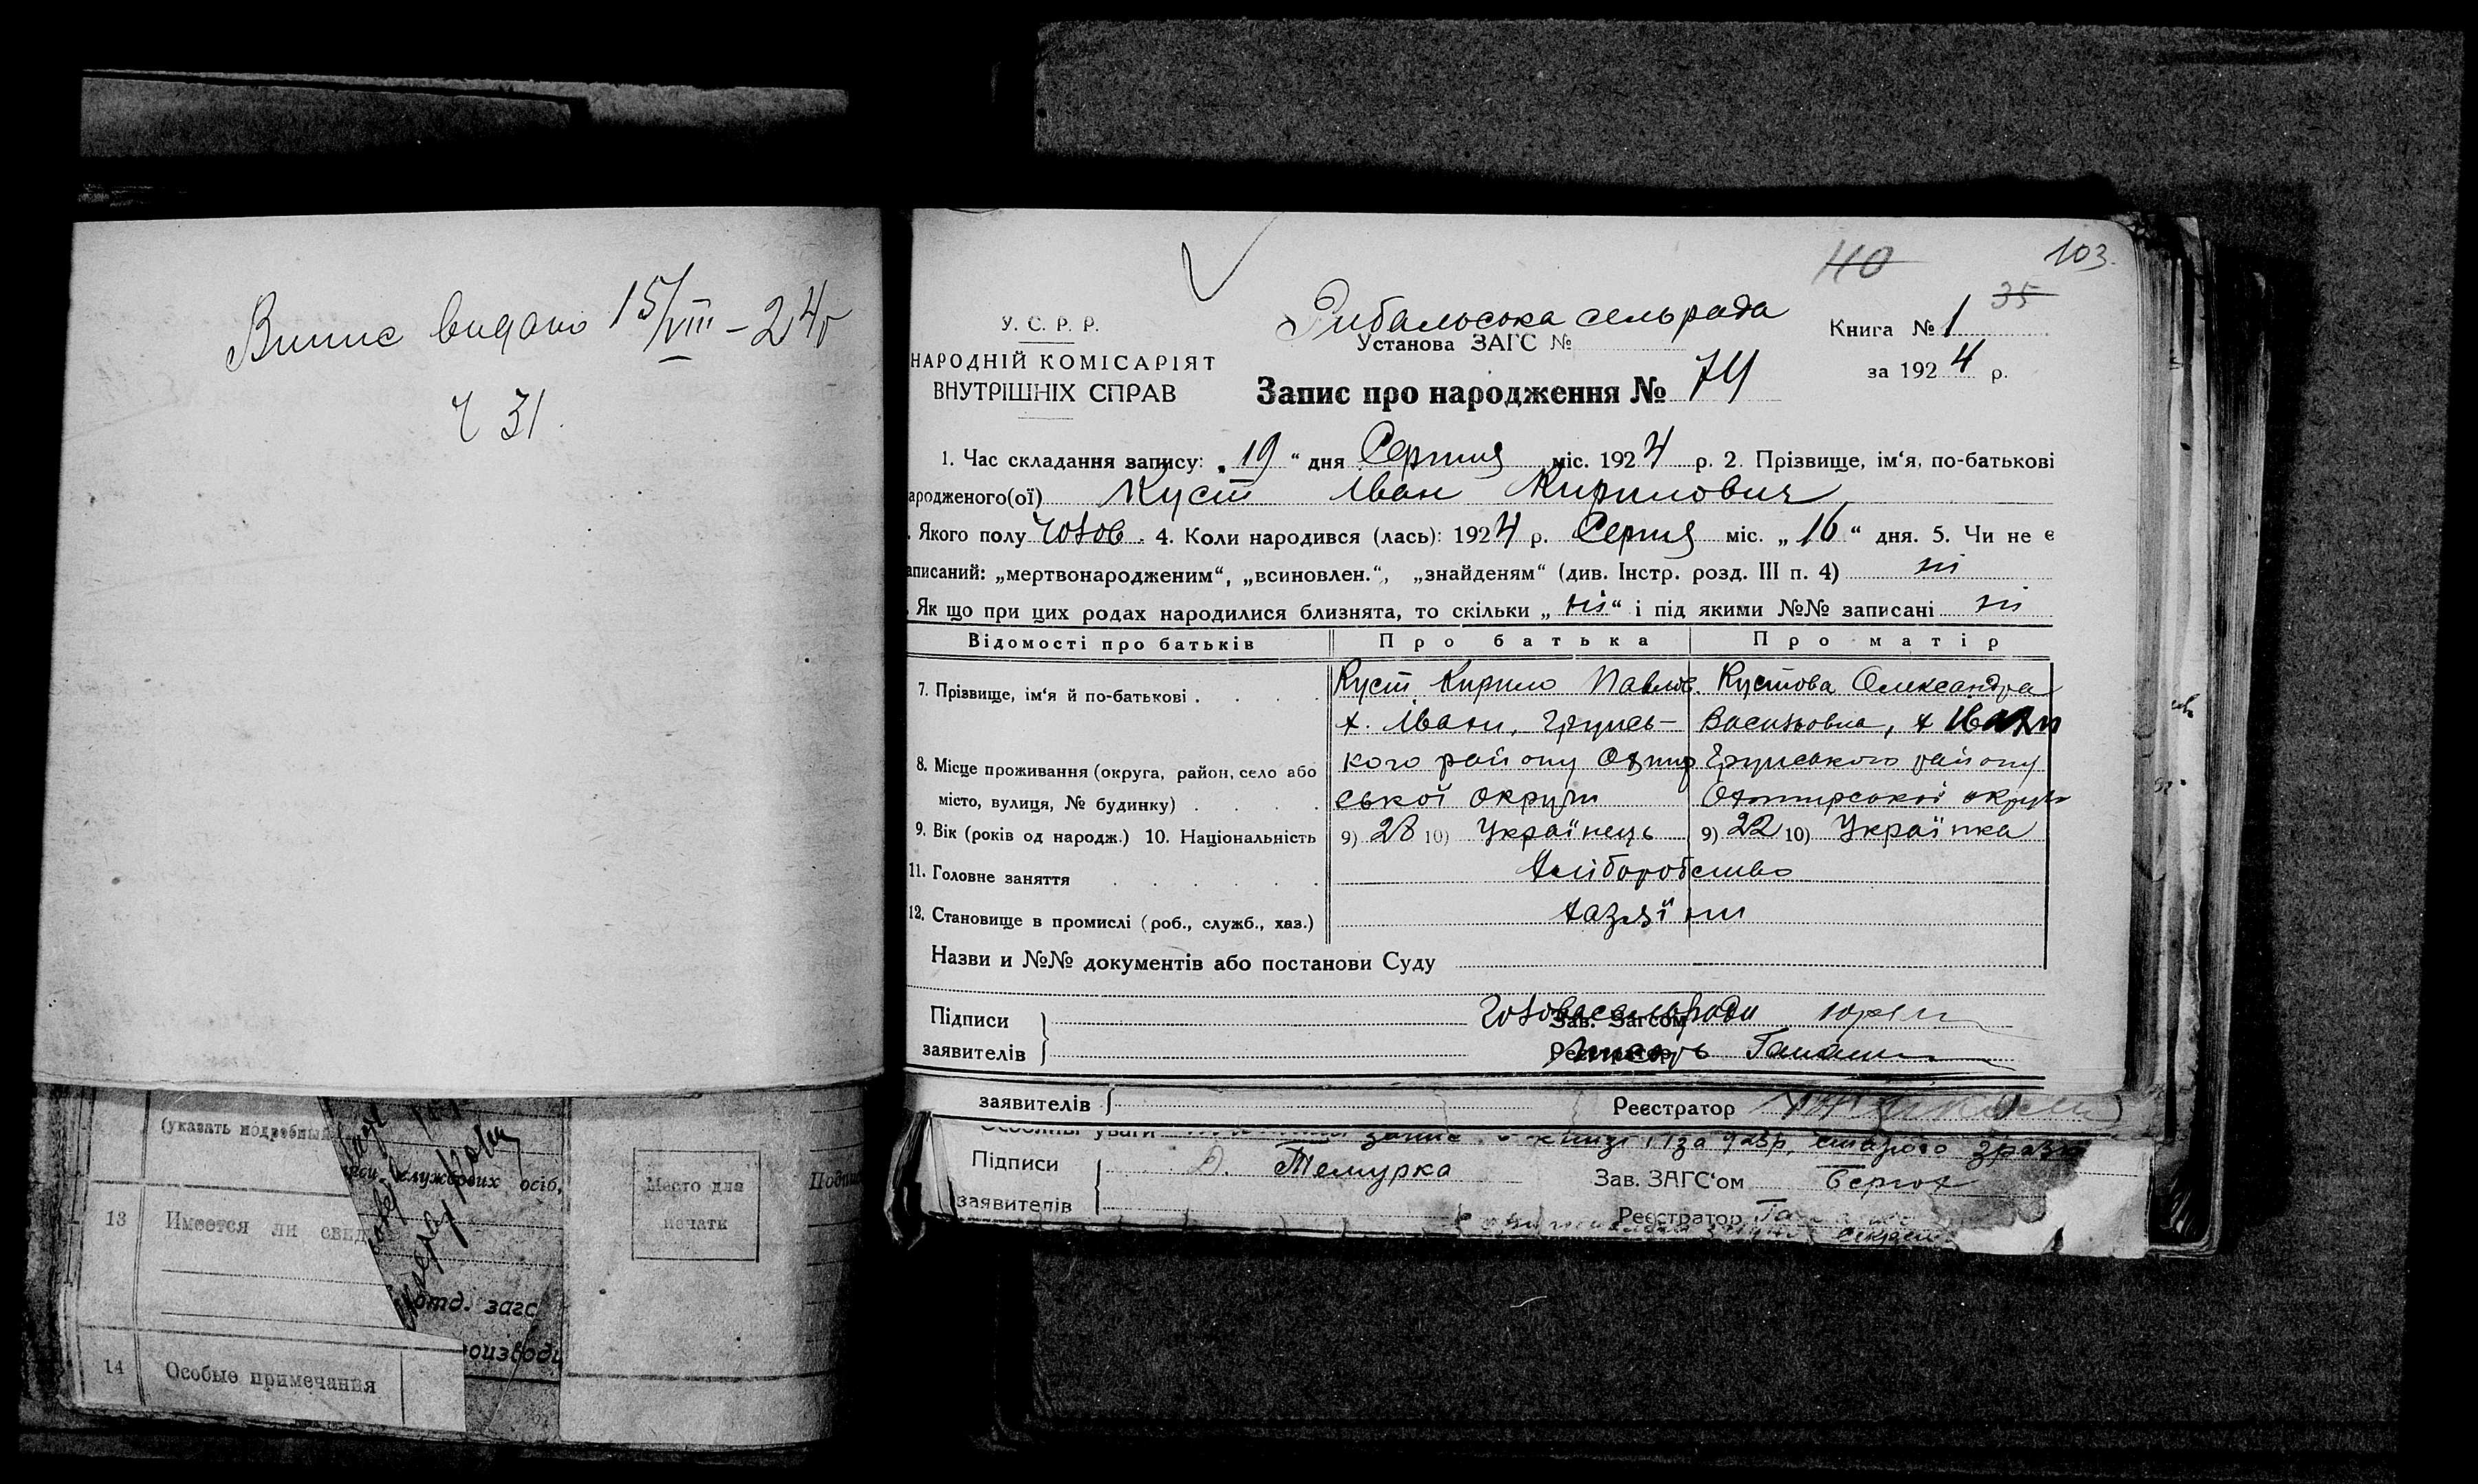 Випис видано 15/VIII – 24 р
Ч 31.
(указать подробный
13 Имеется ли свид
14 Особые примечания
службових осіб,
отд. загс
Место для
печати
103.
110
35
У. С. Р. Р.
НАРОДНІЙ КОМІСАРІЯТ
ВНУТРІШНІХ СПРАВ
Рибальська сельрада
Установа ЗАГС №
Книга № 1
за 1924 р.
Запис про народження № 74
1. Час складання запису: „19“ дня Серпня міс. 1924 р. 2. Прізвище, ім‘я, по-батькові
ародженого(ої) Куст Іван Кирилович
. Якого полу Чолов. 4. Коли народився (лась): 1924 р. Серпня міс. „16“ дня. 5. Чи не є
аписаний: „мертвонародженим“, „всиновлен.“, „знайденям“ (див. Інстр. розд. III п. 4) ні
. Як що при цих родах народилися близнята, то скільки „ні“ і під якими №№ записані ні
Відомості про батьків Про батька Про матір
7. Прізвище, ім‘я й по-батькові . . . . Куст Кирило Павлов. Кустова Олександра
х. Івани, Грунсь- Васильовна, х Івани
8. Місце проживання (округа, район, село або кого району Охтир Грунського району
місто, вулиця, № будинку) . . . . ської округи Охтирської округи
9. Вік (років од народж.) 10. Національність 9) 28 10) Українець 9) 22 10) Українка
11. Головне заняття . . . . . . Хліборобство
12. Становище в промислі (роб., служб., хаз.) Хазяїни
Назви и №№ документів або постанови Суду
Підписи Зав. Загсом Головасельради
заявителів Реєстратор
заявителів Реєстратор
запис в книзі
Підписи Темурка Зав. ЗАГС‘ом
заявителів Реєстратор